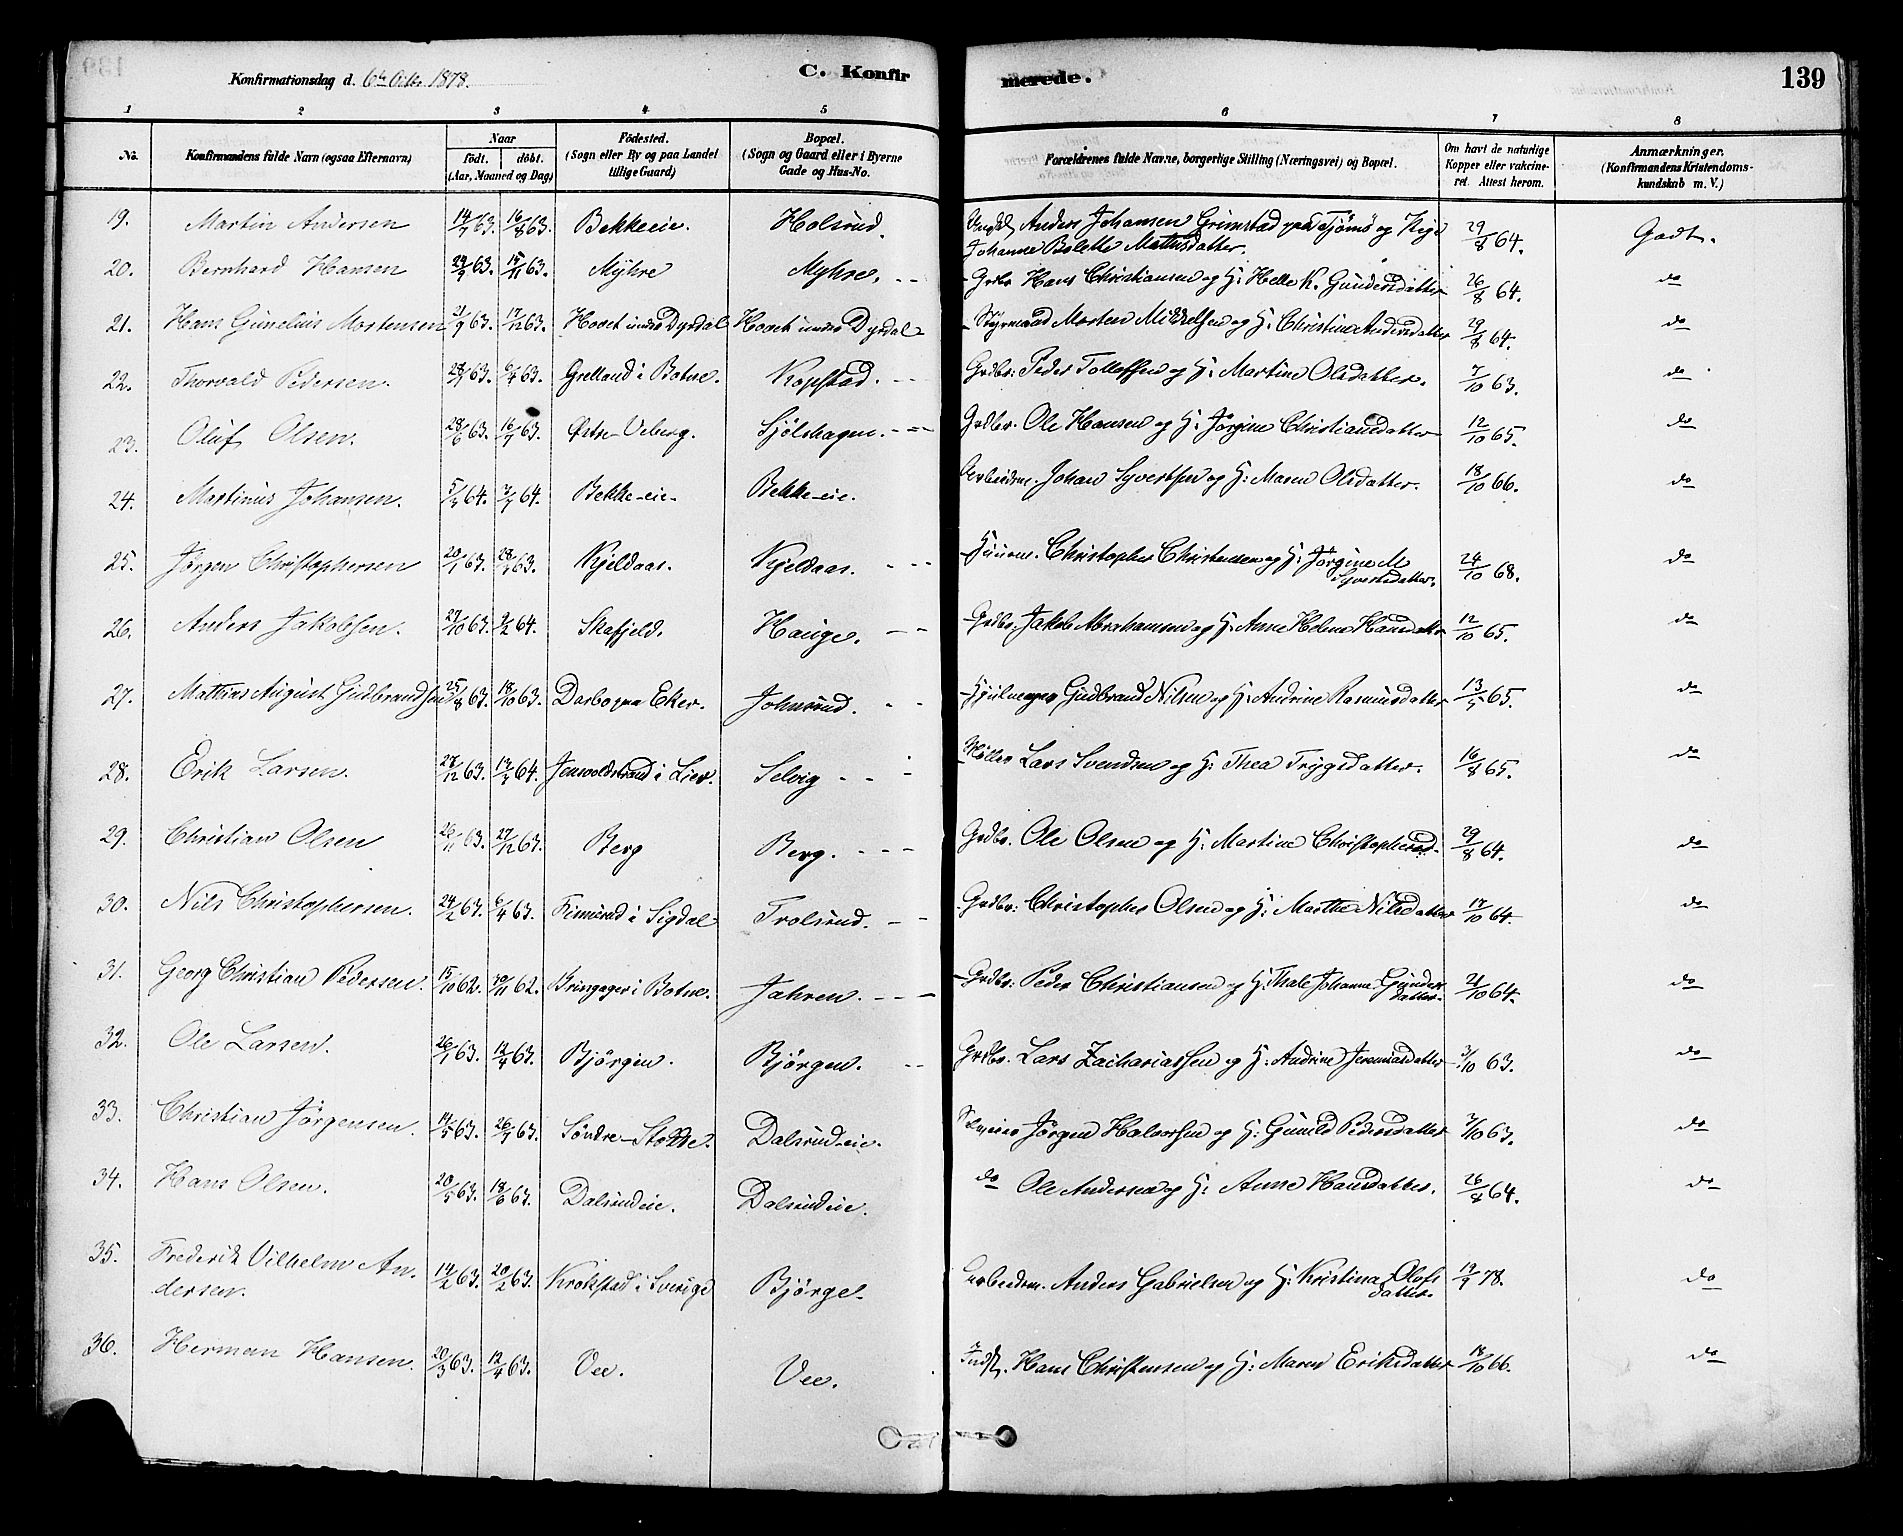 Konfirmationsdag d. 6te Octr. 1878.
C. Konfirmerede.
139
1 2 3 4 5 6 7 8
No.
Konfirmandens fulde Navn (ogsaa Efternavn)
Naar
født. døbt.
(Aar, Maaned og Dag)
Fødested.
(Sogn eller By og paa Landet tillige Gaard)
Bopæl.
(Sogn og Gaard eller i Byerne Gade og Hus-No.
Forældrenes fulde Navne, borgerlige Stilling (Næringsvei) og Bopæl.
Om havt de naturlige Kopper eller vakcineret. Attest herom.
Anmærkninger.
(Konfirmandens Kristendomskundskab m. V.)
19. Martin Andersen 14/7 63. 16/8 63. Bekkeeie. Holsrud. Anders Johansen Grimstad paa Tjømø og Pige Johanne Bolette Mathisdatter. 29/8 64. Godt.
20. Bernhard Hansen 15/11 63. Myhre Myhre. Grdbr Hans Christiansen og H: Helle K. Gundersdatter 26/8 64. do
21. Hans Gunelius Mortensen 2/9 63. 17/12 63. Hovet under Dyrdal Hovet under Dyrdal Styrmand Morten Mikkelsen og H: Christine Andersdatter 29/8 64. do
22. Thorvald Pedersen. 6/4 63. Grelland i Botne. Kopstad. Grdbr: Peder Tollefsen og H: Martine Olsdatter. 7/10 63. do
23. Oluf Olsen. 28/6 63. 16/7 63. Østre-Veberg. Sjølshagen. Grdbr. Ole Hansen og H: Jørgine Christiansdatter 12/10 65. do
24. Martinus Johansen. Bekke-eie. Bekke-eie. Arbeidsm. Johan Syvertsen og H: Maren Olsdatter. 18/10 66. do
25. Jørgen Christophersen 20/1 63. Kjeldaas. Kjeldaas. Huusm. Christopher Christensen og H: Jørgine M Syvertsdatter. 24/10 68. do
26. Anders Jakobsen. 27/10 63. 2/2 64. Skafjeld. Hauge. Grdbr: Jakob Abrahamsen og H: Anne Helene Hansdatter 12/10 65. do
27. Mathias August Gudbrandsen 25/8 63. 18/10 63. Darbo paa Eker. Johnsrud. Gudbrand Nilsen og H: Andrine Rasmusdatter 13/5 65. do
28. Erik Larsen. 27/12 63. Jensvoldstrand i Lier. Selvig Møller Lars Svendsen og H: Thea Trygsdatter. 16/8 65. do
29. Christian Olsen 26/11 63. 27/12 63. Berg Berg. Grdbr. Ole Olsen og H: Martine Christophersd. 29/8 64. do
30. Nils Christophersen. 24/2 63. 6/4 63. Finnerud i Sigdal Trolsrud. Grdbr: Christopher Olsen og H: Marthe Nilsdatter 17/10 64. do
31. Georg Christian Pedersen. 15/10 62. 30/11 62. Bringager i Botne. Jahren. Grdbr: Peder Christiansen og H: Thale Johanne Gundersdatter. 21/10 64. do
32. Ole Larsen. 26/1 63. 12/4 63. Bjørgen. Bjørgen. Grdbr. Lars Zachariassen og H: Andrine Jeremiasdatter 3/10 63. do
33. Christian Jørgensen. 14/5 63. 26/7 63. Søndre-Stokke. Dalsrud-eie. Selveier Jørgen Halvorsen og H: Gunild Pedersdatter 7/10 63. do
34. Hans Olsen. 20/5 63. 18/6 63. Dalsrudeie. Dalsrudeie. do Ole Andersen og H: Anne Hansdatter. 26/8 64. do
35. Frederik Vilhelm Andersen. 14/2 63. 20/2 63. Krokstad i Sverige Bjørge. Arbeidsm. Anders Gabrielsen og H: Kristina Olofsdatter. 78. do
36. Herman Hansen. 20/3 63. 12/4 63. Vee. Vee. Indst. Hans Christensen og H: Maren Eriksdatter 18/10 66. do